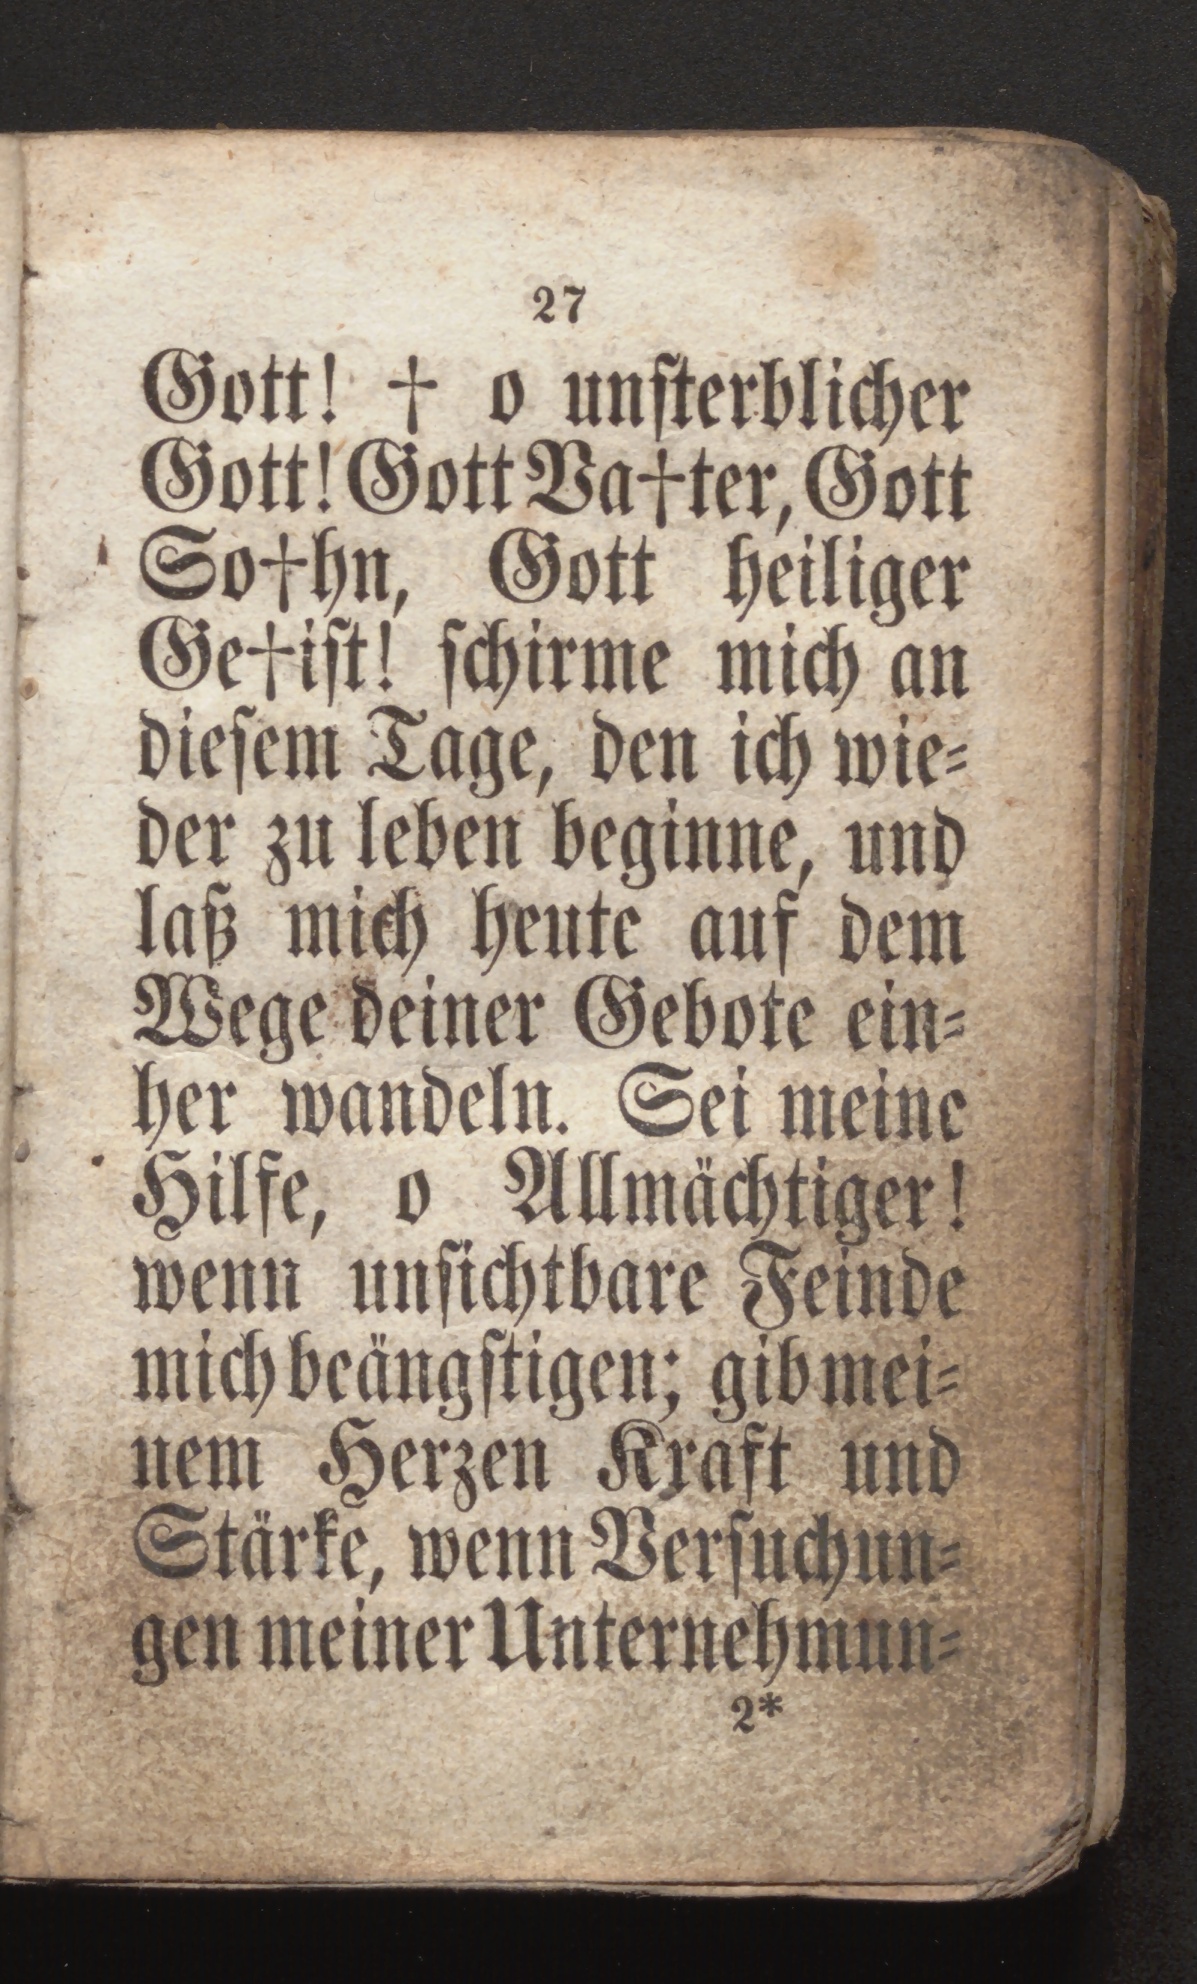 27
Gott! † o unſterblicher
Gott! Gott Va†ter, Gott
So†hn, Gott heiliger
Ge†iſt! ſchirme mich an
dieſem Tage, den ich wie⸗
der zu leben beginne, und
laß mich heute auf dem
Wege deiner Gebote ein⸗
her wandeln. Sei meine
Hilfe, o Allmächtiger!
wenn unſichtbare Feinde
mich beängſtigen; gib mei⸗
nem Herzen Kraft und
Stärke, wenn Verſuchun⸗
gen meiner Unternehmun⸗
2*